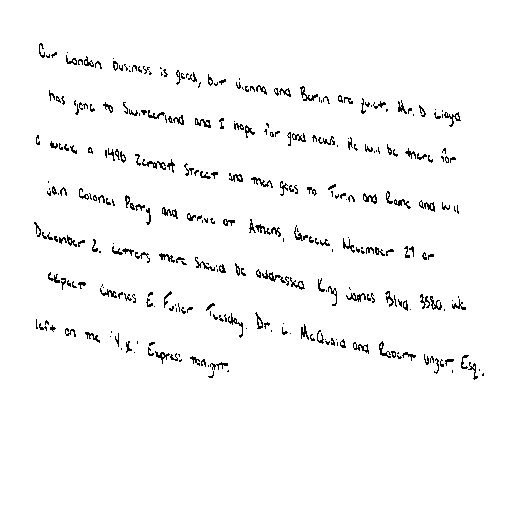 Our London business is good, but Vienna and Berlin are quiet. Mr. D. Lloyd
has gone to Switzerland and I hope for good news. He will be there for
a week a 1496 Zermott Street and then goes to Turin and Rome and will
join Colonel Parry and arrive at Athens, Greece, November 27 or
December 2. Letters there should be addressed King James Blvd. 3580. We
expect Charles E. Fuller Tuesday. Dr. L. McQuaid and Robert Unger, Esq.,
left on the 'Y.X.' Express tonight.